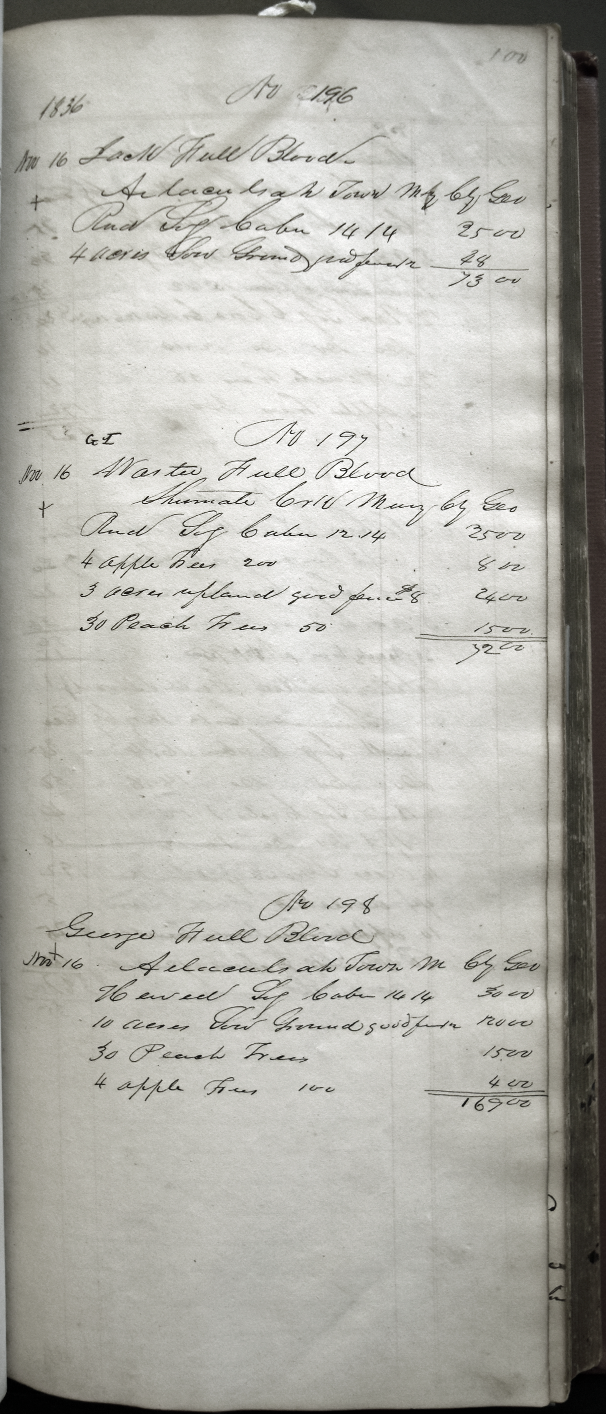 100
1836 No 196
Nov 16 Jack Full Blood
+ Ailaculsah Town My Cty Geo
Rnd Log Cabn 14 14 25 00
4 acres Low Ground good fence 12 48
73 00
GI No 197
Nov 16 Full Blood
+ Shumate Crk Mury Cty Geo
Rnd Log Cabn 12.14 25 00
4 apple Trees 200 8 00
3 acres upland good fence $8 24 00
30 Peach Trees 50 15 00
72 00
No 198
George Full Blood
Nov + 16 Ailaculsah Town M Cty Geo
Hewed Log Cabn 14 14 30 00
10 acres Low Ground good fence 12 120 00
30 Peach Trees 15 00
4 apple Trees 100 4 00
169 00